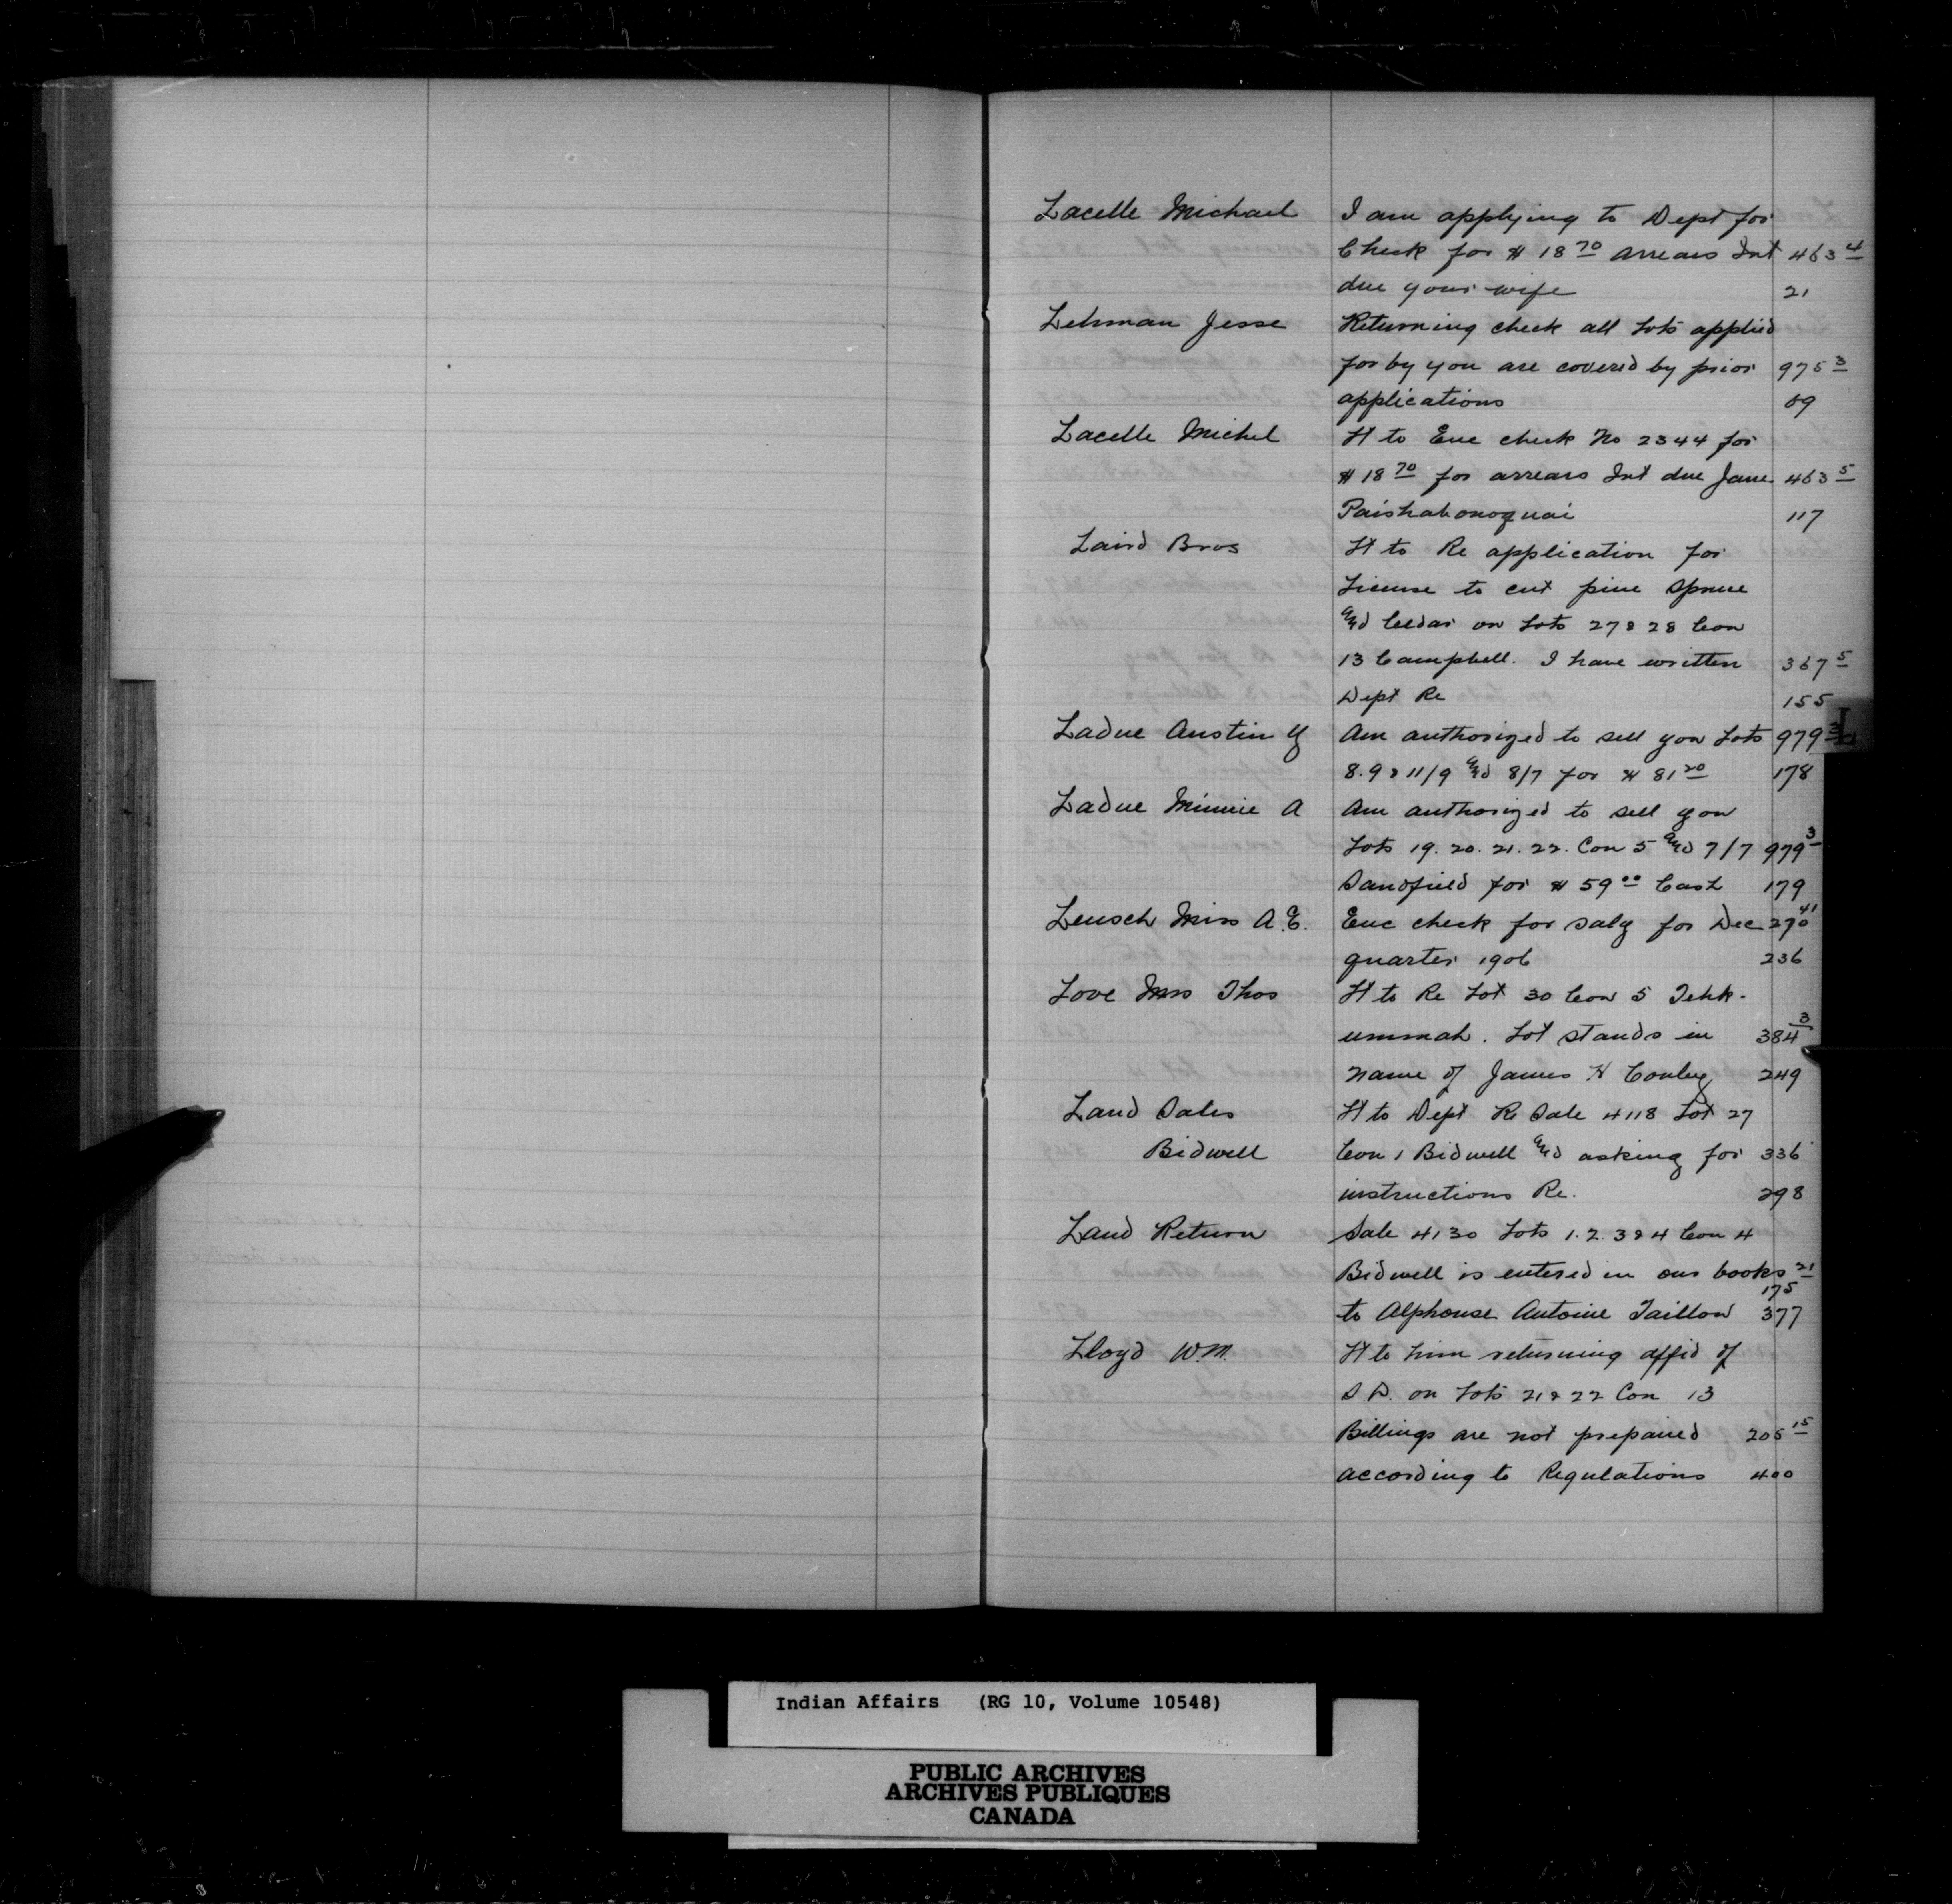 Lacelle Michael I am applying to Dept for
Check for $ 18 70 arrears Int 463 4
due your wife 21
Lehman Jesse Returning check all Lots applied
for by you are covered by prior 975 3
applications 89
Lacelle Michel Lt to Enc check No 2344 for
$ 18 70 for arrears Int due Jane 463 5
Paishabonoquai 117
Laird Bros Lt to Re application for
License to cut pine spruce
and Cedar on Lots 27 & 28 Con
13 Campbell. I have written 367 5
Dept Re 155
Ladue Austin Y Am authorized to sell you Lots 979 3
8.9 & 11/9 and 8/7 for $ 81 20 178
Ladue Minnie A Am authorized to sell you
Lots 19. 20. 21. 22. Con 5 and 7/7 979 3
Sandfield for $ 59 00 Cash 179
Leusch Miss A.E. Enc check for saly for Dec 270 41
quarter 1906 236
Love Mrs Thos Lt to Re Lot 30 Con 5 Tehk-
ummah. Lot stands in 384 3
name of James H Conley 249
Land Sales Lt to Dept Re Sale 4118 Lot 27
Bidwell Con 1 Bidwell and asking for 336
instructions Re. 298
Land Return Sale 4130 Lots 1. 2. 3 & 4 Con 4
Bidwell is entered in our books 21
175
to Alphonse Antoine Taillon 377
Lloyd W.M. Lt to him returning affid of
S D. on Lots 21 & 22 Con 13
Billings are not prepaired 205 15
according to Regulations 400
L
Indian Affairs (RG 10, Volume 10548)
PUBLIC ARCHIVES
ARCHIVES PUBLIQUES
CANADA